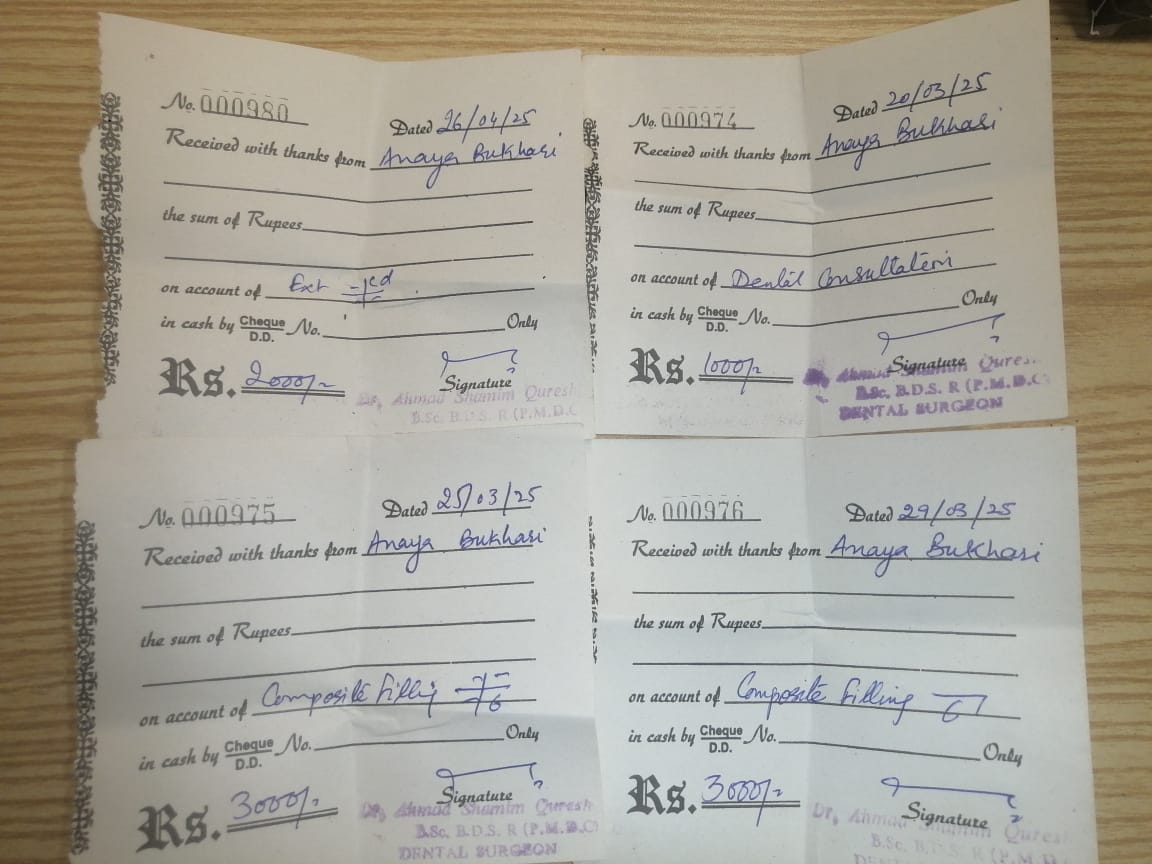 No. 000980
Dated 26/04/25
Received with thanks from Anaya Bukhari
the sum of Rupees
on account of Ext
in cash by Cheque/D.D. No. Only
Rs. 2000/-
Signature
Dr. Ahmad Shamim Quresh
B.Sc. B.D.S. R (P.M.D.C
No. 000974
Dated 20/03/25
Received with thanks from Anaya Bukhari
the sum of Rupees
on account of Dental Consultation
in cash by Cheque/D.D. No. Only
Rs. 1000/-
Signature
Dr. Ahmad Shamim Qures
B.Sc. B.D.S. R (P.M.D.C
DENTAL SURGEON
No. 000975
Dated 25/03/25
Received with thanks from Anaya Bukhari
the sum of Rupees
on account of Composite Filling
in cash by Cheque/D.D. No. Only
Rs. 3000/-
Signature
Dr. Ahmad Shamim Quresh
B.Sc. B.D.S. R (P.M.D.C
DENTAL SURGEON
No. 000976
Dated 29/03/25
Received with thanks from Anaya Bukhari
the sum of Rupees
on account of Composite Filling
in cash by Cheque/D.D. No. Only
Rs. 3000/-
Signature
Dr. Ahmad Shamim Qures
B.Sc. B.D.S. R (P.M.D